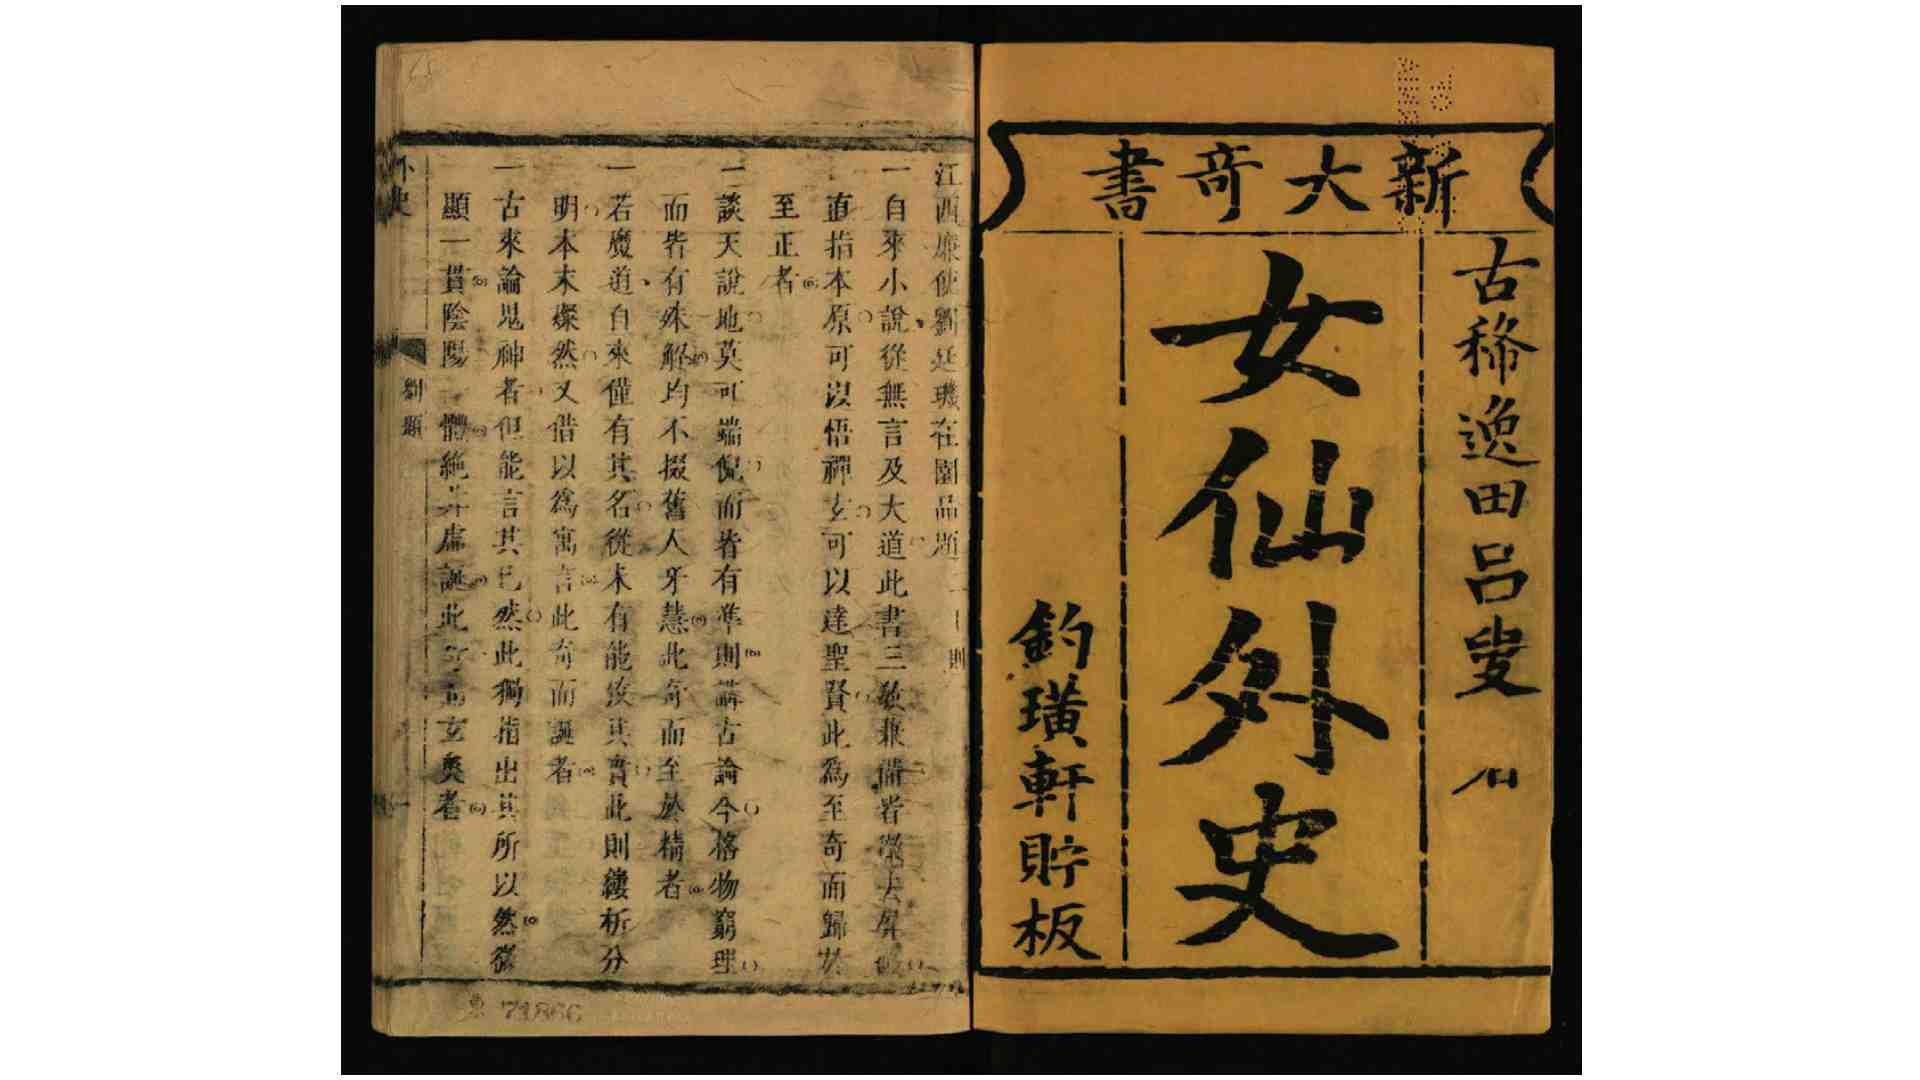 新大奇書
古稀逸田呂叟
女仙外史
釣璜軒貯板
江西廉使劉廷璣在園品題二十則
一自來小說從無言及大道此書三教兼備皆徹去屏
直指本原可以悟禪玄可以達聖賢此為至奇而歸於
至正者
一談天說地莫可端倪而皆有準則講古論今格物窮理
而皆有殊解均不掇舊人牙慧此奇而至於精者
一若魔道自來僅有其名從未有能後其實此則縷析分
明本末燦然又借以為寓言此奇而誕者
一古來論鬼神者但能言其已然此獨指出其所以然微
顯一貫陰陽一體絕弃虛誕此玄奧者
外史
劉題
一
東
71866